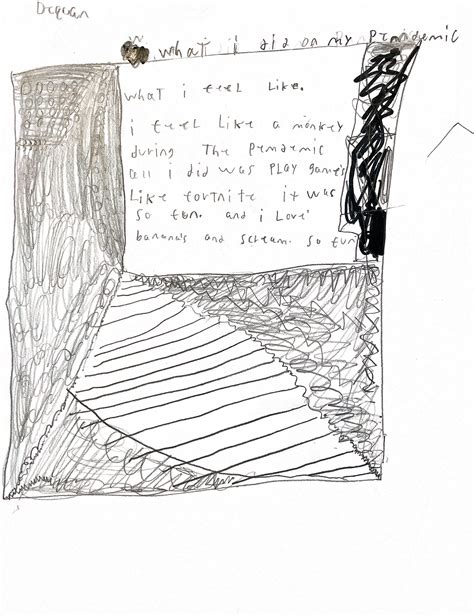 Dequan
what i did on my Pendemic
what i feel like.
i feel like a monkey
during The Pendemic
all i did was PLAY games
Like fortnite it was
so fun. and i Love
banana's and scream. so fun